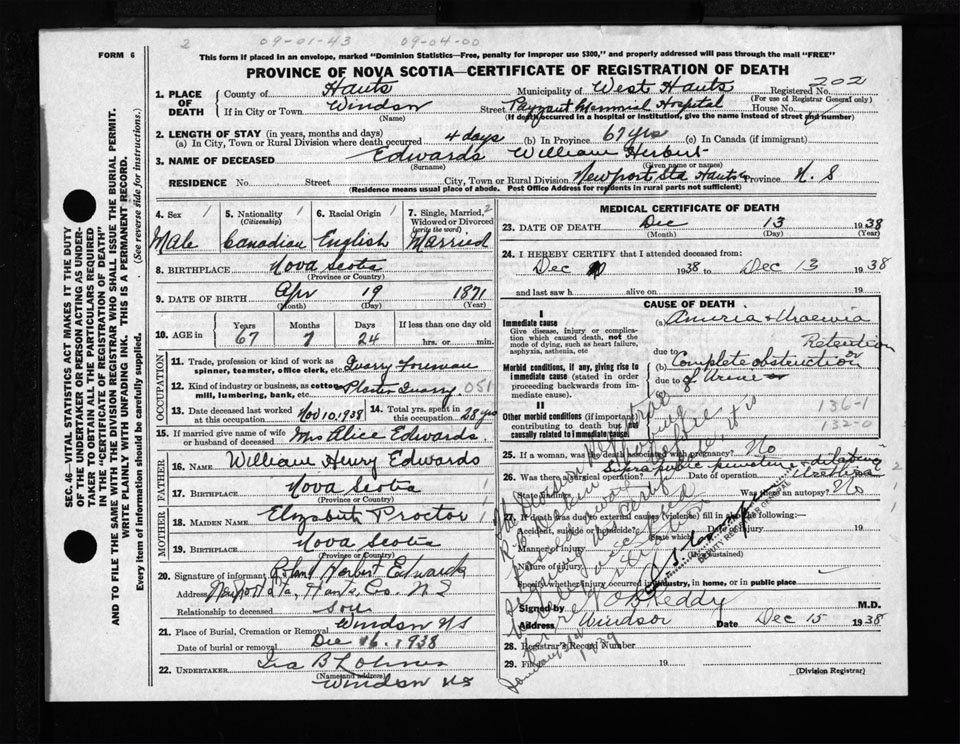 2 09-01-43 09-04-00
FORM 6
This form if placed in an envelope, marked "Dominion Statistics—Free, penalty for improper use $300," and properly addressed will pass through the mail "FREE"
PROVINCE OF NOVA SCOTIA—CERTIFICATE OF REGISTRATION OF DEATH
SEC. 46—VITAL STATISTICS ACT MAKES IT THE DUTY OF THE UNDERTAKER OR PERSON ACTING AS UNDERTAKER TO OBTAIN ALL THE PARTICULARS REQUIRED IN THE "CERTIFICATE OF REGISTRATION OF DEATH"
AND TO FILE THE SAME WITH THE DIVISION REGISTRAR WHO SHALL ISSUE THE BURIAL PERMIT.
WRITE PLAINLY WITH UNFADING INK. THIS IS A PERMANENT RECORD.
Every item of information should be carefully supplied. (See reverse side for instructions.)
1. PLACE OF DEATH
County of Hants Municipality of West Hants Registered No. 202
(For use of Registrar General only)
If in City or Town Windsor Street Payzant Memorial Hospital House No.
(Name) (If death occurred in a hospital or institution, give the name instead of street and number)
2. LENGTH OF STAY (in years, months and days)
(a) In City, Town or Rural Division where death occurred 4 days (b) In Province 67 yrs (c) In Canada (if immigrant)
3. NAME OF DECEASED Edwards William Herbert
(Surname) (Given name or names)
RESIDENCE No. Street City, Town or Rural Division Newport Sta Hants Co Province N. S
(Residence means usual place of abode. Post Office Address for residents in rural parts not sufficient)
4. Sex 1 Male
5. Nationality 1 (Citizenship) Canadian
6. Racial Origin 1 English
7. Single, Married, 2 Widowed or Divorced (write the word) Married
8. BIRTHPLACE Nova Scotia
(Province or Country)
9. DATE OF BIRTH Apr 19 1871
(Month) (Day) (Year)
10. AGE in Years 67 Months 7 Days 24 If less than one day old hrs. or min.
OCCUPATION
11. Trade, profession or kind of work as spinner, teamster, office clerk, etc. Quarry Foreman
12. Kind of industry or business, as cotton mill, lumbering, bank, etc. Plaster Quarry 051
13. Date deceased last worked at this occupation Nov 10, 1938
14. Total yrs. spent in this occupation 28 yrs
15. If married give name of wife or husband of deceased Mrs Alice Edwards.
FATHER
16. NAME William Henry Edwards
17. BIRTHPLACE Nova Scotia 1
(Province or Country)
MOTHER
18. MAIDEN NAME Elizabeth Proctor 1
19. BIRTHPLACE Nova Scotia
(Province or Country)
20. Signature of informant Herbert Edwards
Address Newport Sta, Hants, Co. N. S
Relationship to deceased son
21. Place of Burial, Cremation or Removal Windsor NS
Date of burial or removal Dec 16, 1938
22. UNDERTAKER Ira B Lohnes
(Name and address)
Windsor NS
MEDICAL CERTIFICATE OF DEATH
23. DATE OF DEATH Dec 13 1938
(Month) (Day) (Year)
24. I HEREBY CERTIFY that I attended deceased from:
Dec 1938 to Dec 13 1938
and last saw h alive on 19
CAUSE OF DEATH
I
Immediate cause
Give disease, injury or complication which caused death, not the mode of dying, such as heart failure, asphyxia, asthenia, etc.
(a)
Retention
due to
Morbid conditions, if any, giving rise to immediate cause (stated in order proceeding backwards from immediate cause).
(b) Complete obstruction
due to of Urine
II
Other morbid conditions (if important) contributing to death but not causally related to immediate cause.
136-1
132-0
25. If a woman, was the death associated with pregnancy? No
Suprapubic puncture & dilating Urethra
26. Was there a surgical operation? Date of operation
State findings Was there an autopsy? No
27. If death was due to external causes (violence) fill in also the following:—
Accident, suicide or homicide? Date of injury 19
Manner of injury
Nature of injury
Specify whether injury occurred in industry, in home, or in public place
DEPUTY REGISTRAR
Signed by O B Keddy M.D.
Address Windsor Date Dec 15 1938
28. Registrar's Record Number
29. Filed 19
(Division Registrar)